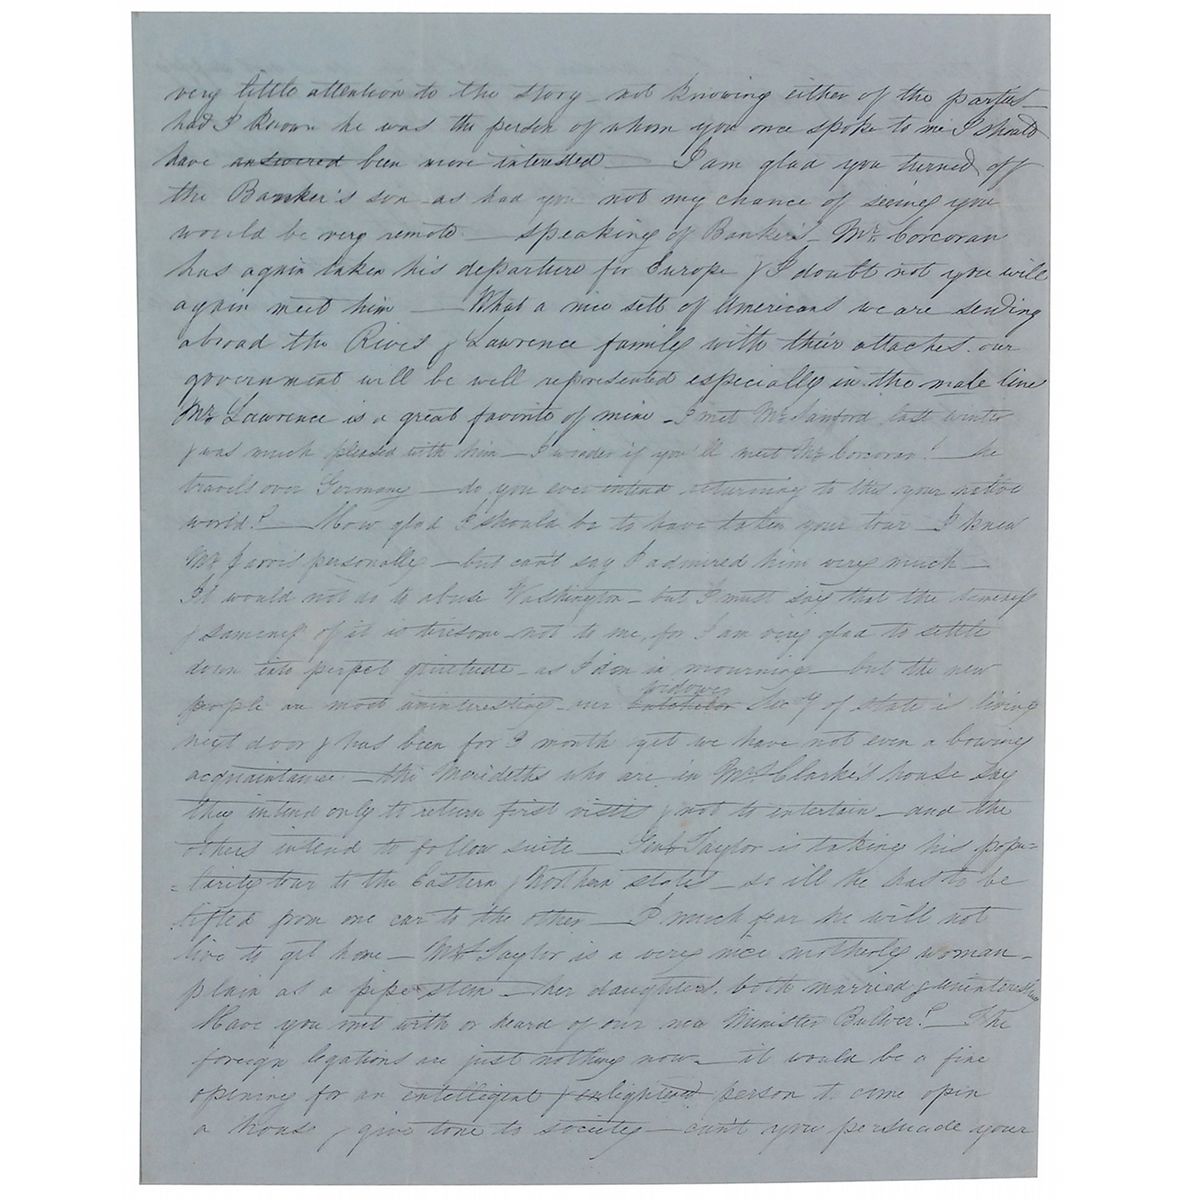 very little attention to the story – not knowing either of the parties –
had I known he was the person of whom you once spoke to me I should
have answered been more interested — I am glad you turned off
the Banker's son – as had you not my chance of seeing you
would be very remote — speaking of Banker's – Mr. Corcoran
has again taken his departure for Europe & I doubt not you will
again meet him — What a nice sett of Americans we are sending
abroad the Rives & Lawrence family with their attaches. our
government will be well represented especially in the male line
Mr. Lawrence is a great favorite of mine – I met Mr Sanford last winter
& was much pleased with him – I wonder if you'll meet Mr Corcoran! – he
travels over Germany – do you ever intend returning to this your native
world? — How glad I should be to have taken your tour – I knew
Mr Jarvis personally – but can't say I admired him very much –
It would not do to abuse Washington – but I must say that the tameness
& sameness of it is tiresome – not to me, for I am very glad to settle
down into perfect quietude – as I am in mourning – but the new
people are most uninteresting – our batchelor widower Sec'y of State is living
next door & has been for 3 month yet we have not even a bowing
acquaintance – the Merediths who are in Mrs Clarke's house say
they intend only to return first visits & not to entertain – and the
others intend to follow suite – Genl Taylor is taking his popu=
=larity tour to the Eastern & Northern states – so ill he has to be
lifted from one car to the other – I much fear he will not
live to get home – Mrs Taylor is a very nice motherly woman –
plain as a pipe stem – her daughters both married & uninteresting
Have you met with or heard of our new Minister Bulwer? – The
foreign legations are just nothing now – it would be a fine
opening for an intelligent & enlightened person to come open
a house & give tone to society – can't you persuade your